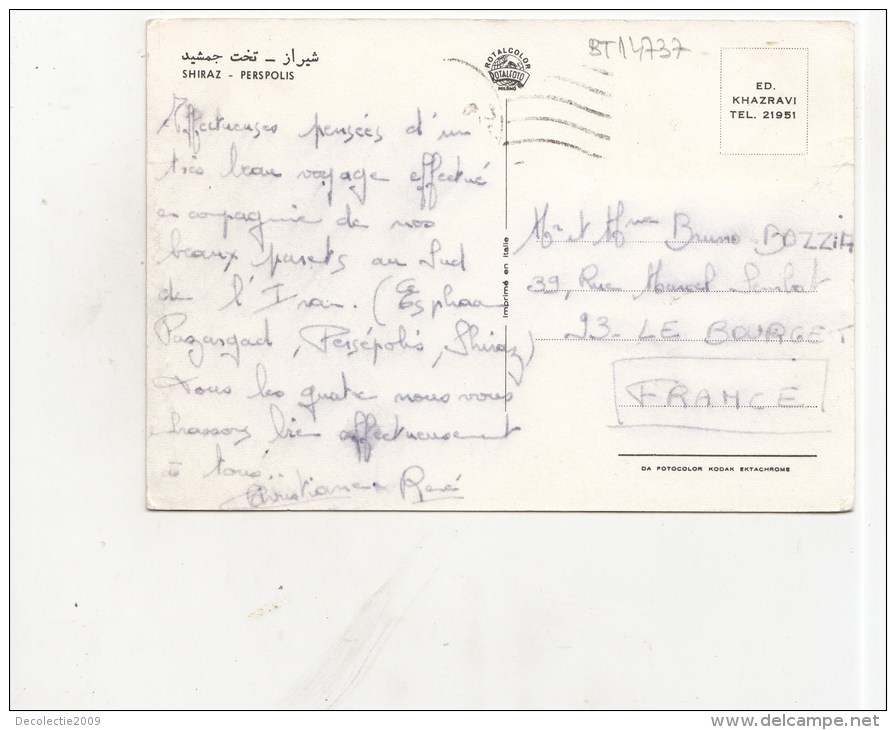 شیراز – تخت جمشید
SHIRAZ - PERSPOLIS
ROTALCOLOR
ROTALFOTO
MILANO
BT14737
ED.
KHAZRAVI
TEL. 21951
Affectueuses pensées d'un
très beau voyage effectué
en compagnie de nos
beaux parents au Sud
de l'Iran. (Esphaan
Pazargad, Persépolis, Shiraz)
Tous les quatre nous vous
embrassons bien affectueusement
à tous..
Christiane René
Imprimé en Italie
Mr et Mme Bruno BOZZIA
39, Rue Marcel Sembat
93- LE BOURGET
FRANCE
DA FOTOCOLOR KODAK EKTACHROME
Decolectie2009
delcampe.net